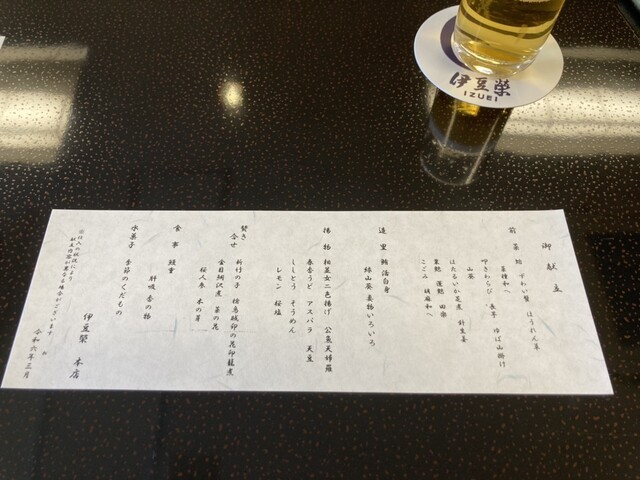 伊豆榮
IZUEI
御献立
前菜 ずわい蟹 ほうれん草
菜種和へ
つきわらび 長芋 ゆば山掛け
山葵
ほたるいか足煮 針生姜
粟麩 蓬麩 田楽
こごみ 胡麻和へ
造里 鮪 活白身
緑山葵 妻物いろいろ
揚物 相並女二色揚げ 公魚天婦羅
春香うど アスパラ 天豆
ししとう そうめん
レモン 桜塩
焚き合せ 新竹の子 桧烏賊印の花印籠煮
金目鯛沢煮 菜の花
桜人参 木の芽
食事 鰻重
肝吸 香の物
水菓子 季節のくだもの
※仕入の状況により
献立内容が異なる場合がございます
伊豆榮 本店
令和六年三月